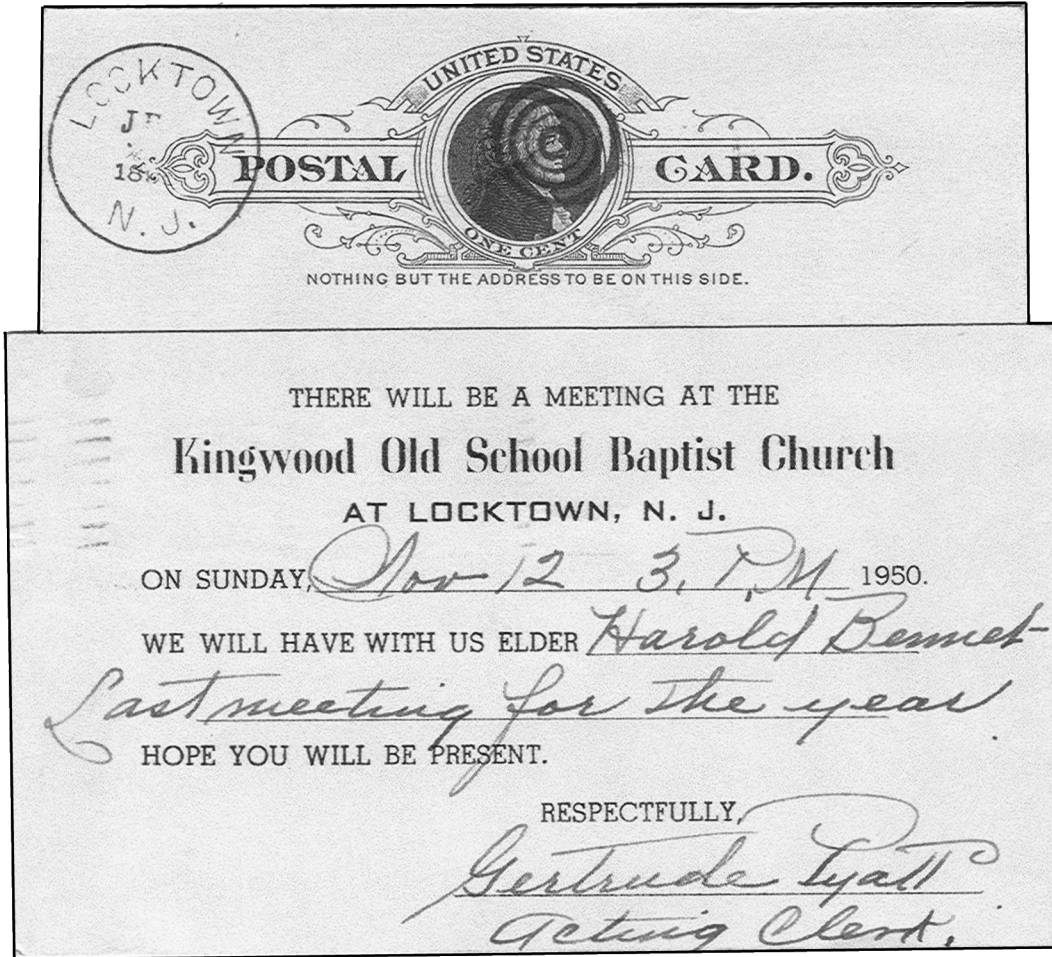 LOCKTOWN
N. J.
UNITED STATES
POSTAL CARD.
ONE CENT
NOTHING BUT THE ADDRESS TO BE ON THIS SIDE.
THERE WILL BE A MEETING AT THE
Kingwood Old School Baptist Church
AT LOCKTOWN, N. J.
ON SUNDAY, Nov 12 3, P, M 1950.
WE WILL HAVE WITH US ELDER Harold Bennet
Last meeting for the year
HOPE YOU WILL BE PRESENT.
RESPECTFULLY,
Gertrude Pyatt
Acting Clerk.